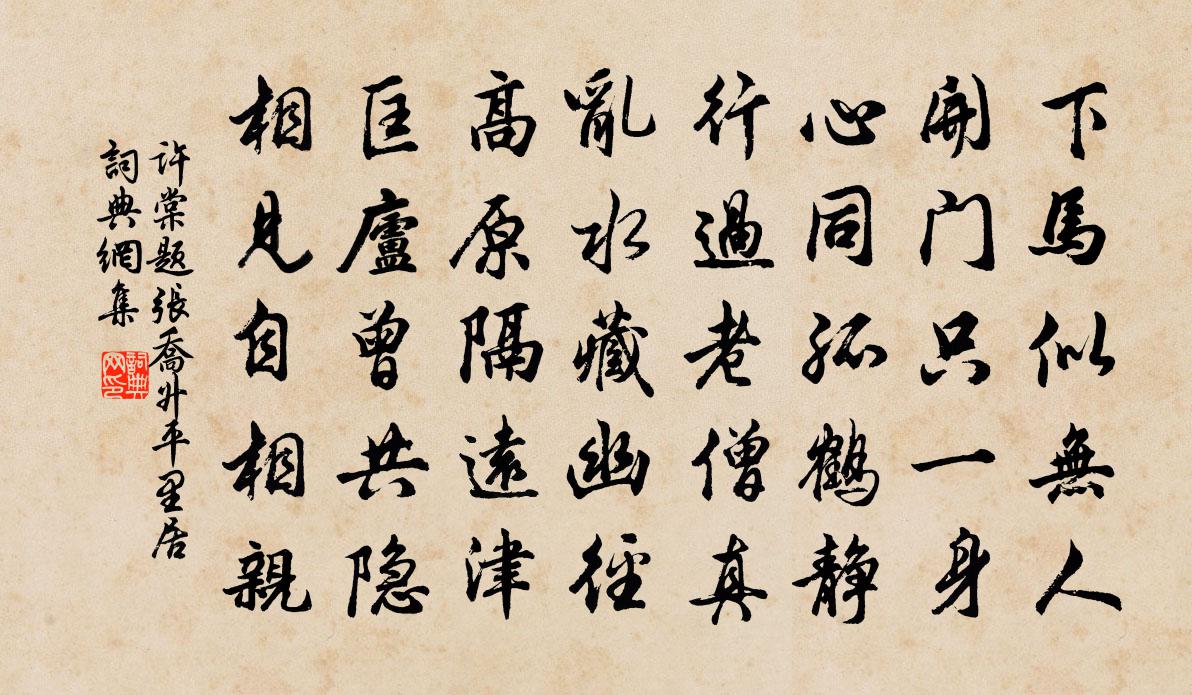 下馬似無人
開门只一身
心同孤鶴静
行過老僧真
亂水藏幽徑
高原隔遠津
匡廬曾共隐
相見自相親
許棠题張喬升平里居
詞典網集
詞典网印